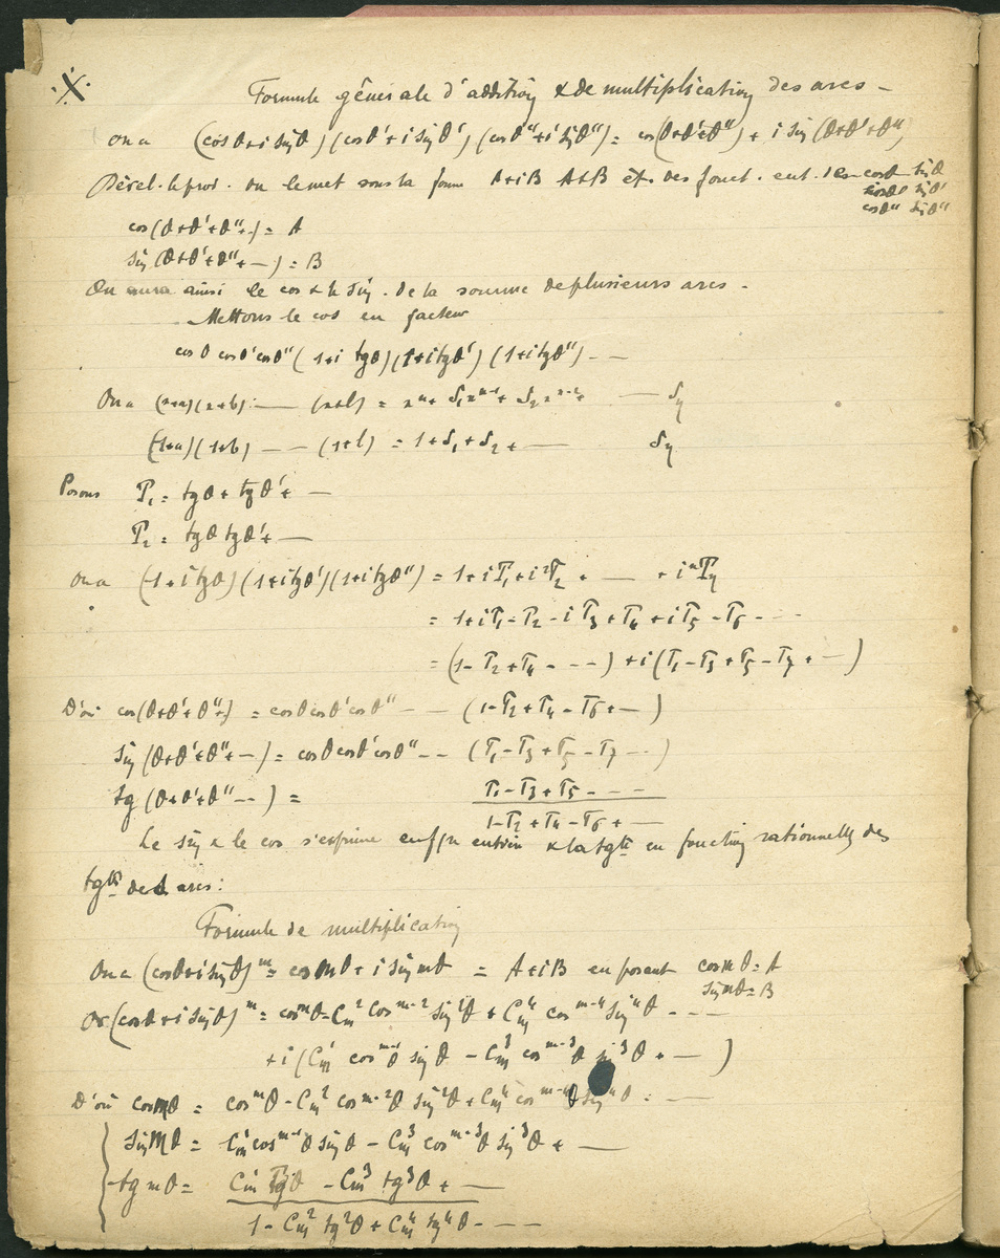 Formule générale d'addition & de multiplication des arcs –
on a (cos θ + i sin θ) (cos θ' + i sin θ') (cos θ'' + i sin θ'') = cos (θ+θ'+θ'') + i sin (θ+θ'+θ'')
Dével. le prod. on le met sous la forme A+iB A & B ét. des fonct. ent. des cos θ sin θ
cos θ' sin θ'
cos θ'' sin θ''
cos (θ+θ'+θ''+-) = A
sin (θ+θ'+θ''+ —) = B
On aura ainsi le cos & le sin. de la somme de plusieurs arcs –
Mettons le cos en facteur
cos θ cos θ' cos θ'' (1+i tg θ) (1+i tg θ') (1+i tg θ'') - —
On a (x+a)(x+b) — (x+l) = xⁿ + S₁xⁿ⁻¹ + S₂xⁿ⁻² + — Sₙ
(1+a)(1+b) — — (1+l) = 1+S₁+S₂+ — Sₙ
Posons T₁ = tg θ + tg θ' + —
T₂ = tg θ tg θ' + —
on a (1+i tg θ) (1+i tg θ') (1+i tg θ'') = 1+iT₁+i²T₂ + — + iⁿTₙ
= 1+iT₁-T₂-iT₃+T₄+iT₅-T₆- ---
= (1-T₂+T₄- ---) +i(T₁-T₃+T₅-T₇+ —)
D'où cos(θ+θ'+θ''+) = cos θ cos θ' cos θ'' - — (1-T₂+T₄-T₆+—)
sin (θ+θ'+θ''+ —) = cos θ cos θ' cos θ'' -- (T₁-T₃+T₅-T₇ ---)
tg (θ+θ'+θ'' --) = T₁-T₃+T₅- ---
1-T₂+T₄-T₆+ —
Le sin & le cos s'exprime en entière & la tgte en fonction rationnelle des
tgtes des arcs:
Formule de multiplication
On a (cos θ + i sin θ)ᵐ = cos mθ + i sin mθ = A+iB en posant cos mθ = A
sin mθ = B
Or (cos θ + i sin θ)ᵐ = cosᵐθ - Cₘ² cosᵐ⁻² sin²θ + Cₘ⁴ cosᵐ⁻⁴ sin⁴θ - ---
+i (Cₘ¹ cosᵐ⁻¹θ sin θ - Cₘ³ cosᵐ⁻³θ sin³θ + —)
D'où cos mθ = cosᵐθ - Cₘ² cosᵐ⁻²θ sin²θ + Cₘ⁴ cosᵐ⁻⁴θ sin⁴θ - —
sin mθ = Cₘ¹ cosᵐ⁻¹θ sin θ - Cₘ³ cosᵐ⁻³θ sin³θ + —
tg mθ = Cₘ¹ tg θ - Cₘ³ tg³θ + —
1 - Cₘ² tg²θ + Cₘ⁴ tg⁴θ - ---